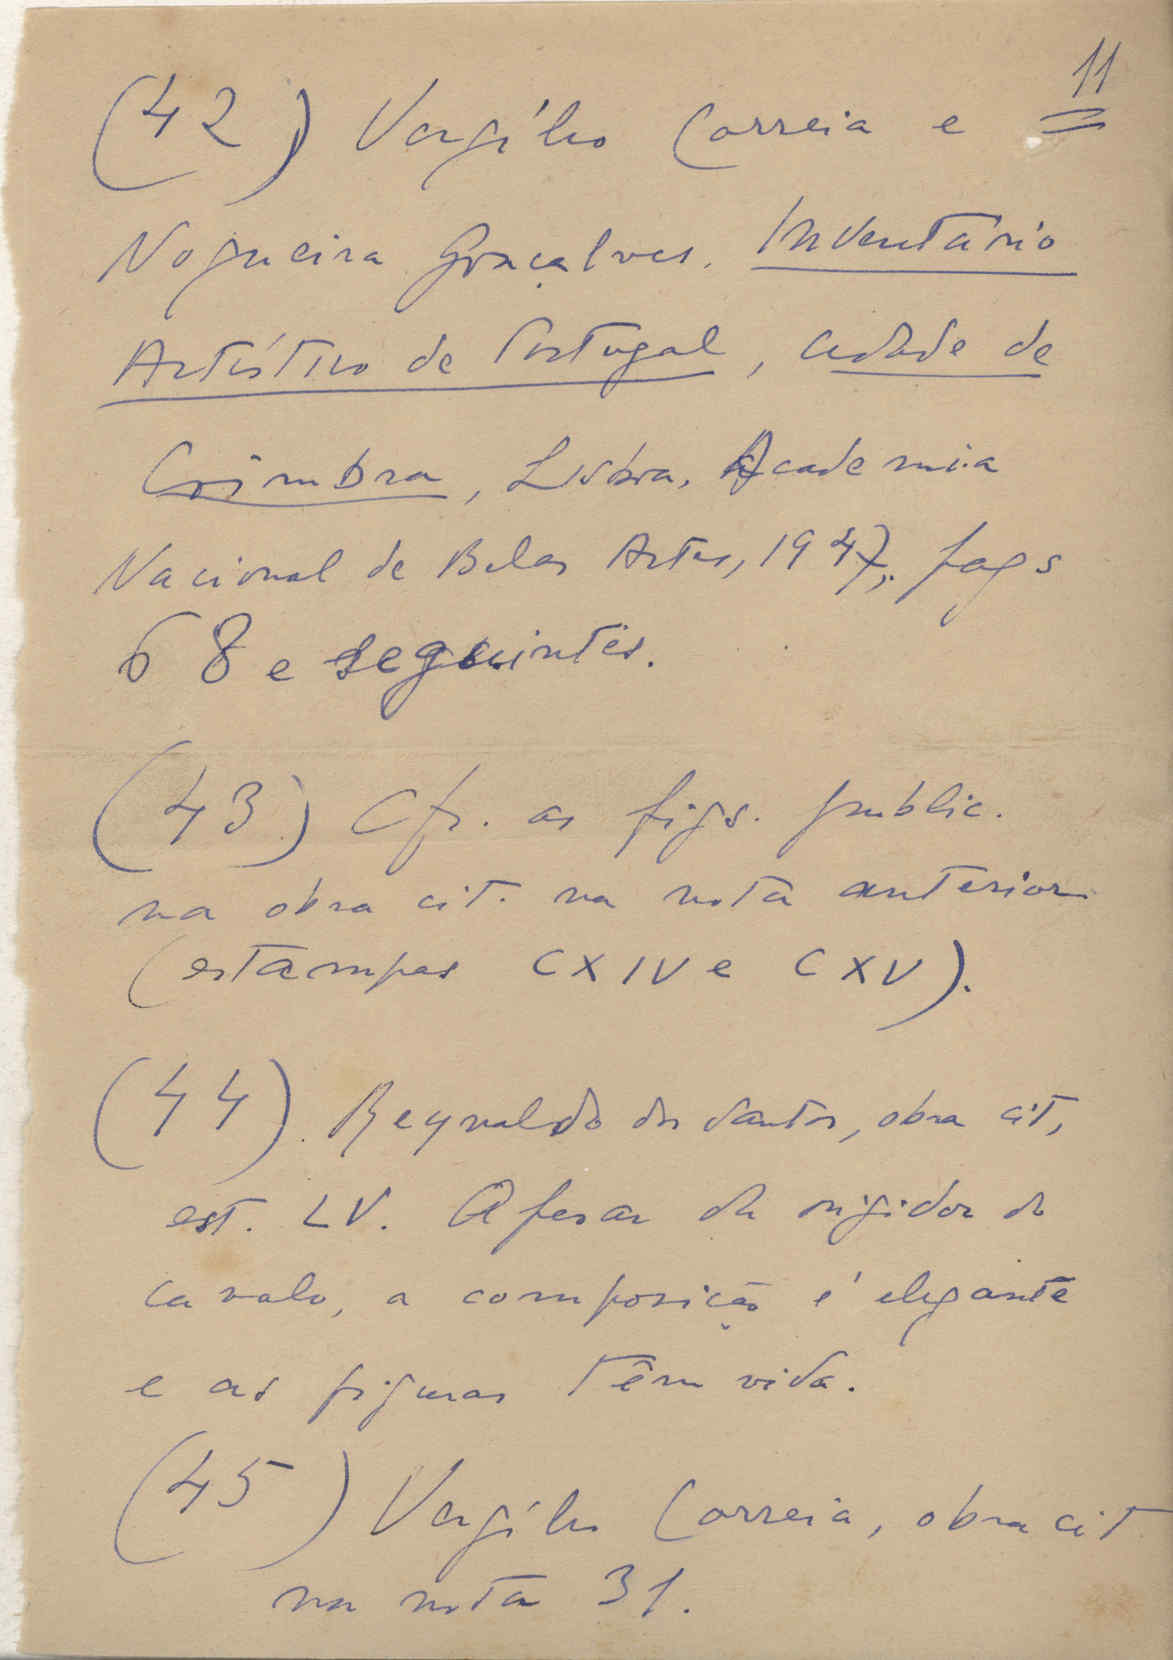 11
(42) Vergílio Correia e
Nogueira Gonçalves, Inventário
Artístico de Portugal, cidade de
Coimbra, Lisboa, Academia
Nacional de Belas Artes, 1947, pags
68 e seguintes.
(43) Cfr. as figs. public.
na obra cit. na nota anterior
(estampas CXIV e CXV).
(44). Reynaldo dos Santos, obra cit,
est. LV. Apesar da rigidez do
cavalo, a composição é elegante
e as figuras têm vida.
(45) Vergílio Correia, obra cit
na nota 31.